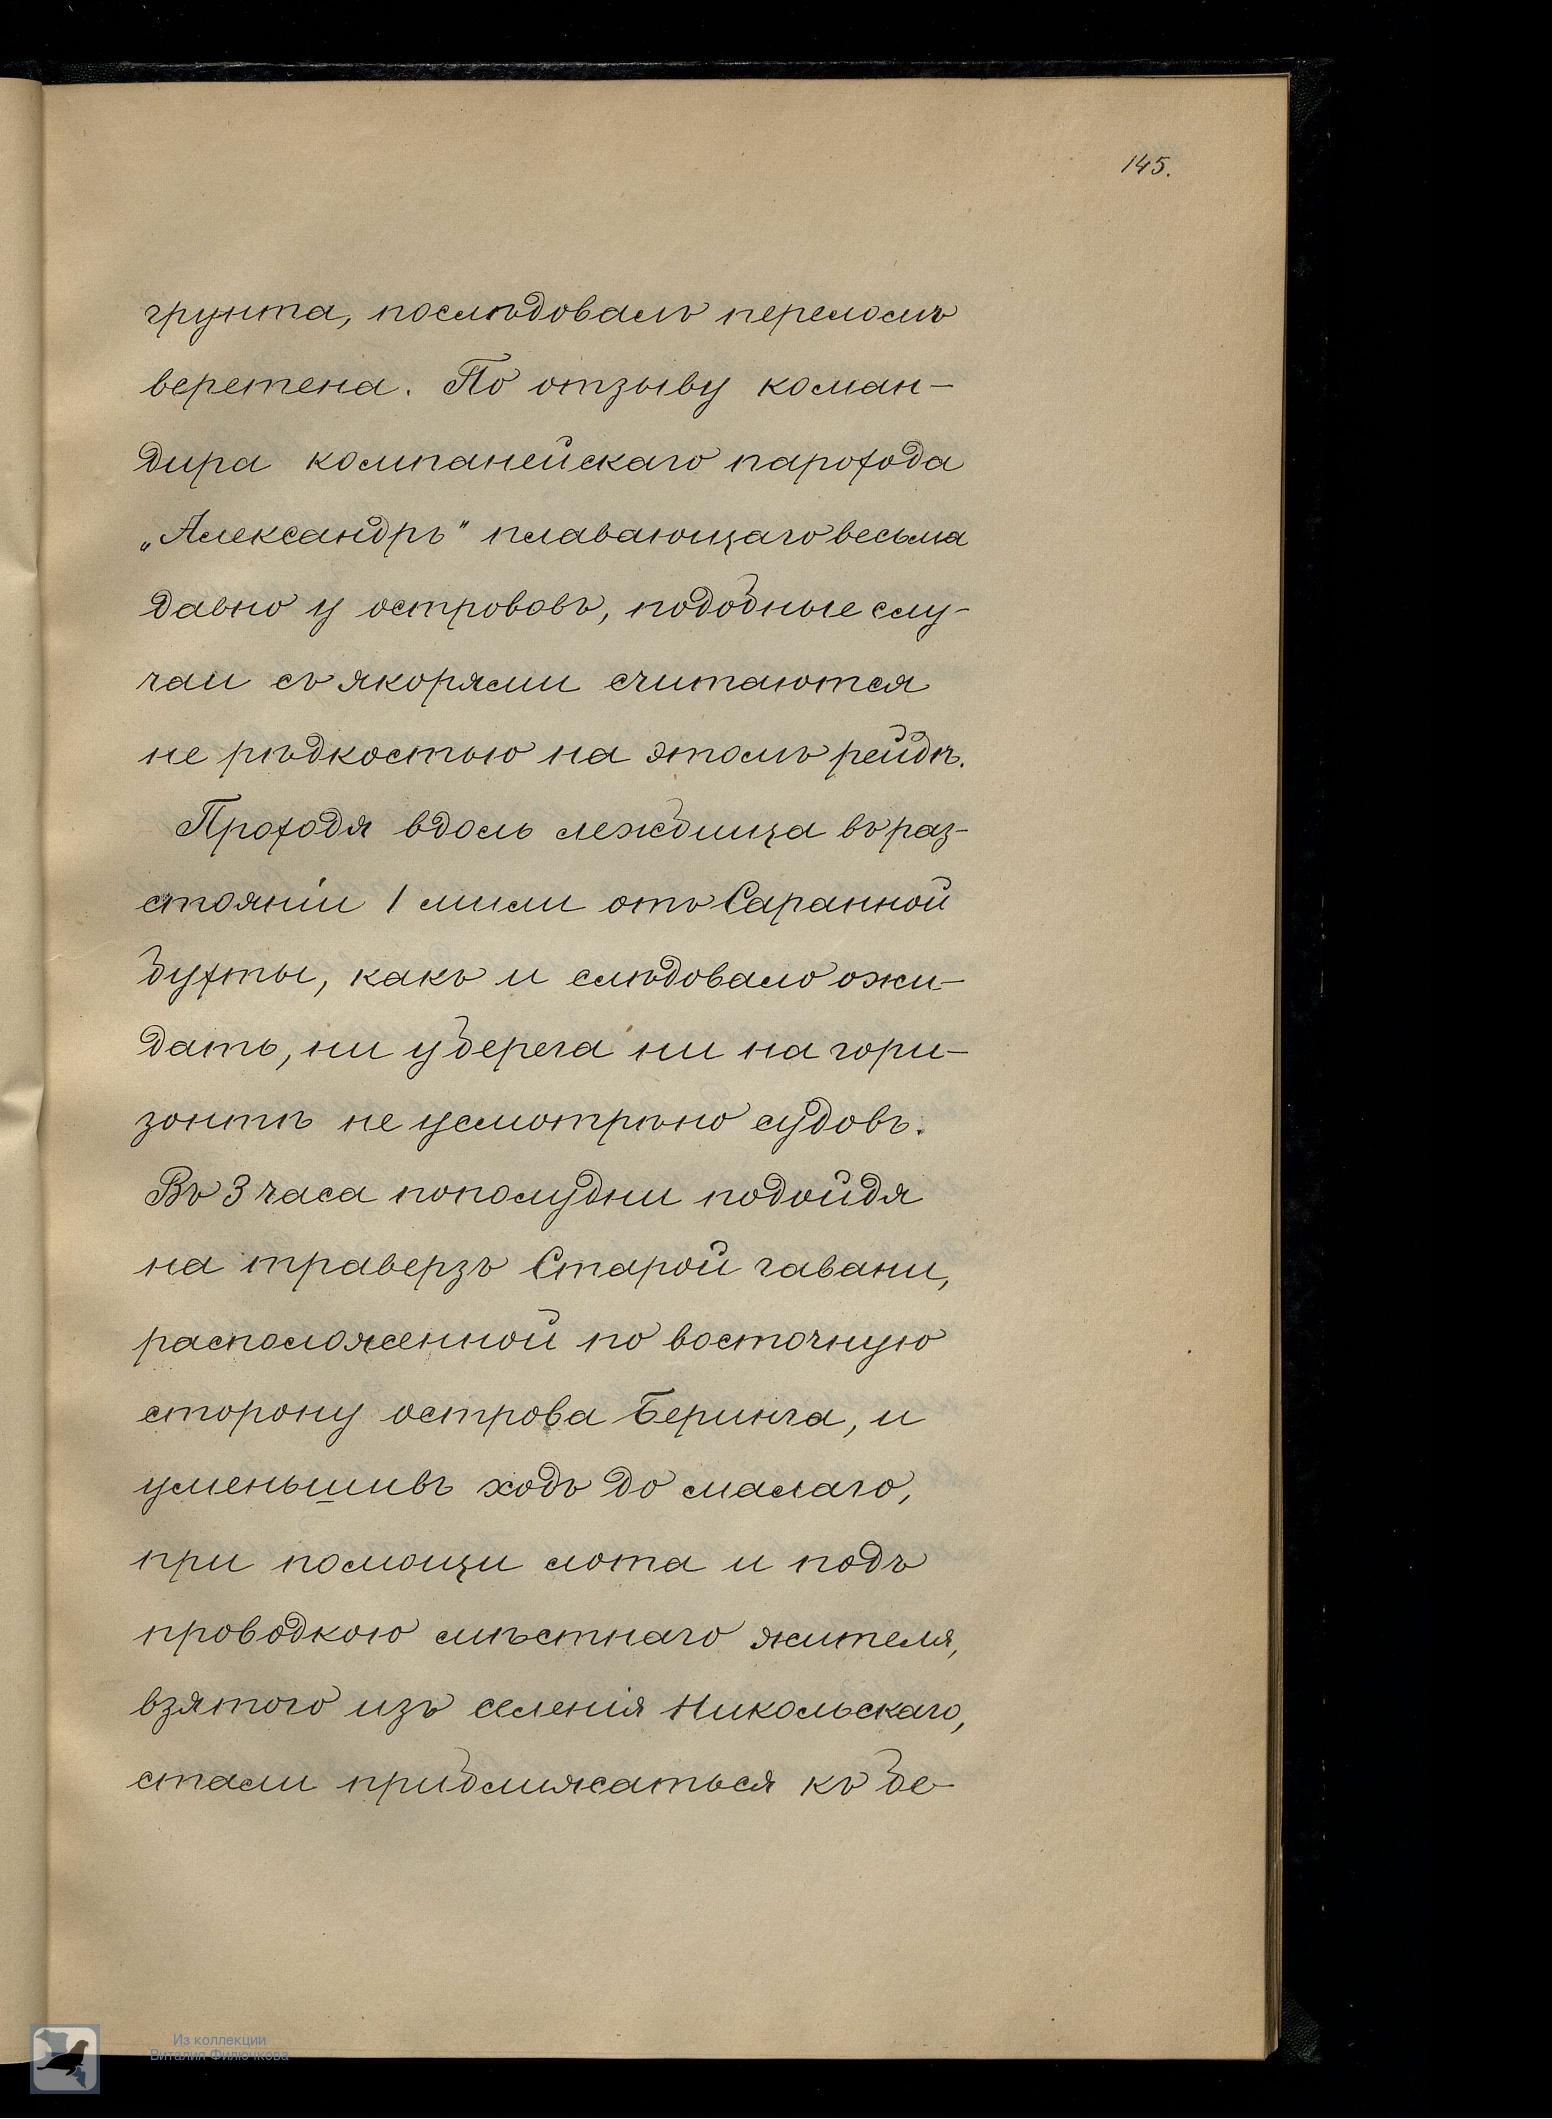 145.
грунта, послѣдовалъ переломъ
веретена. По отзыву коман-
дира компанейскаго парохода
„Александръ" плавающаго весьма
давно у острововъ, подобные слу-
чаи съ якорями считаются
не рѣдкостью на этомъ рейдѣ.
Проходя вдоль лежбища въ раз-
стоянiи 1 мили отъ Саранной
бухты, какъ и слѣдовало ожи-
дать, ни у берега ни на гори-
зонтѣ не усмотрѣно судовъ.
Въ 3 часа пополудни подойдя
на траверзъ Старой гавани,
расположенной по восточную
сторону острова Беринга, и
уменьшивъ ходъ до малаго,
при помощи лота и подъ
проводкою мѣстнаго жителя,
взятого изъ селенiя Никольскаго,
стали приближаться къ бе-
Из коллекции
Виталия Филючкова